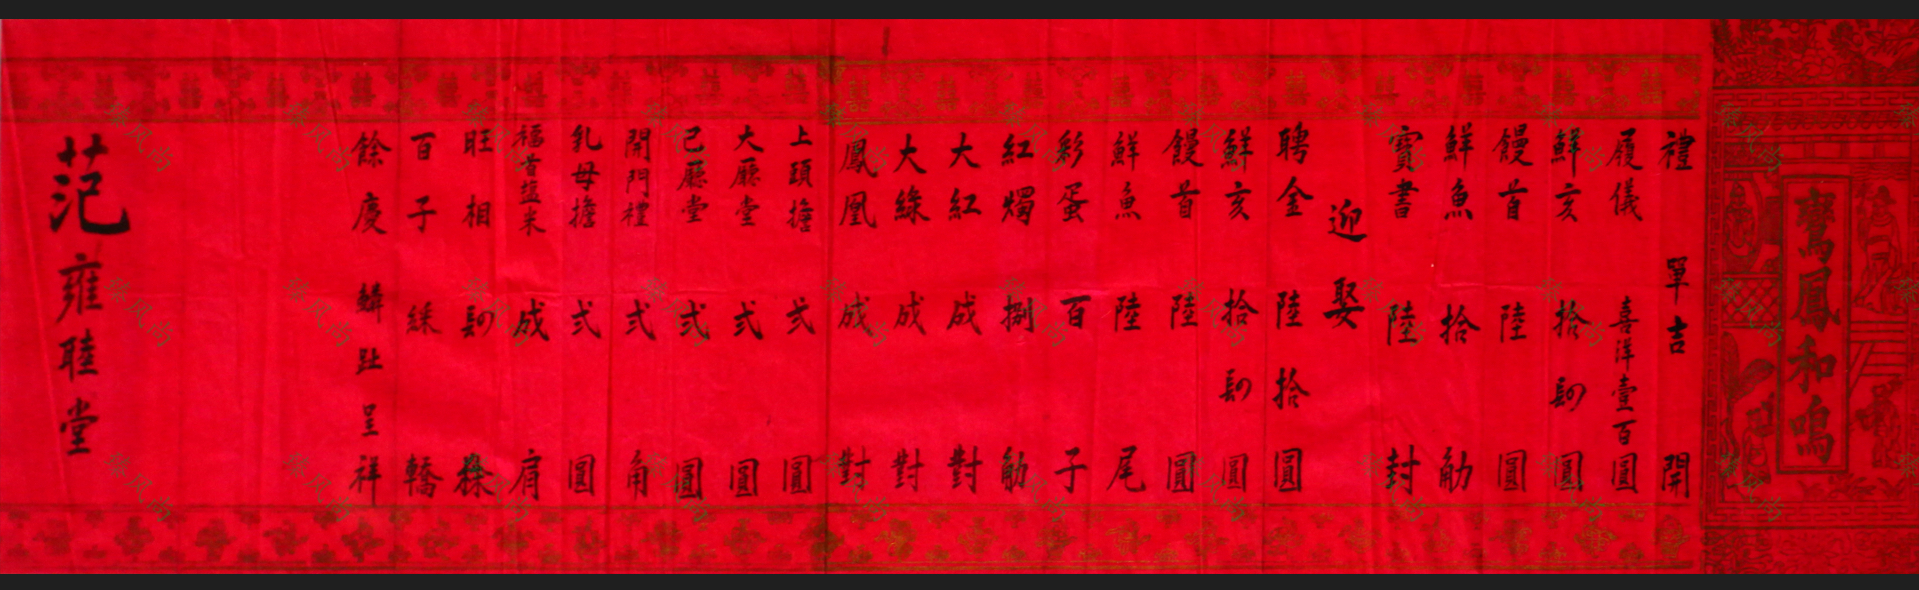 鸞鳳和鳴
禮單吉開
履儀 喜洋壹百圓
鮮亥 拾 圓
饅首 陸圓
鮮魚 拾觔
寶書 陸封
迎娶
聘金 陸拾圓
鮮亥 拾 圓
饅首 陸圓
鮮魚 陸尾
彩蛋 百子
紅燭 捌觔
大紅 成對
大綠 成對
鳳凰 成對
上頭擔 弍圓
大廳堂 弍圓
己廳堂 弍圓
開門禮 弍角
乳母擔 弍圓
鹽米 成肩
旺相
百子 綵轎
餘慶 麟趾呈祥
范雍睦堂
臻风尚